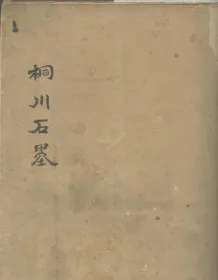 桐川石墨